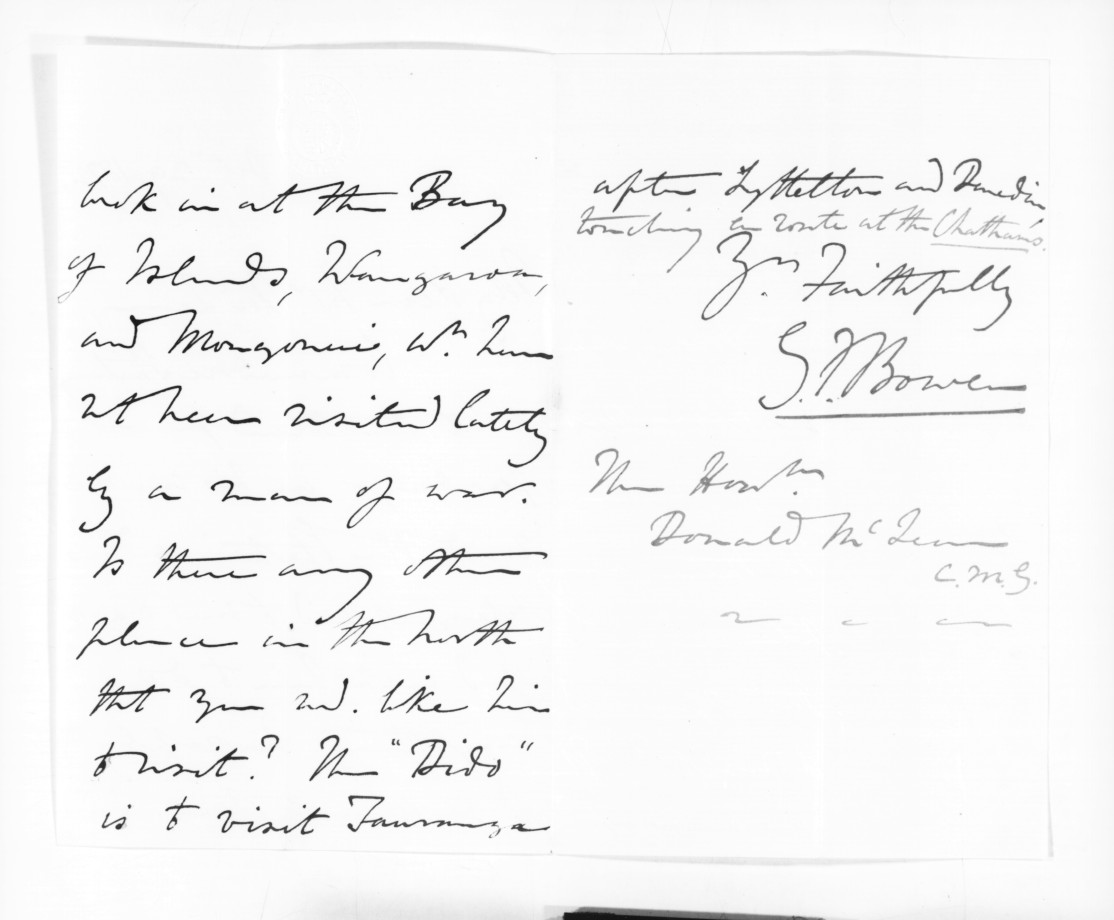 look in at the Bay
of Islands, Wangaroa,
and Mongonui, wh. have
not been visited lately
by a man of war.
Is there any other
place in the north
that you wd. like him
to visit? The "Dido"
is to visit Tauranga
after Lyttelton and Dunedin
touching en route at the Chathams.
Yrs. Faithfully
G.F. Bowen
The Honble.
Donald McLean
C.M.G.